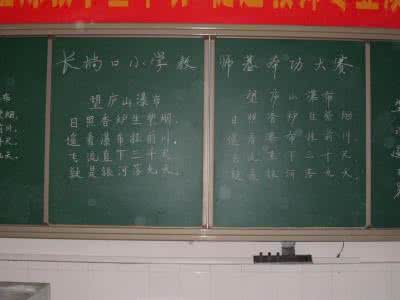 长垱口小学教师基本功大赛
望庐山瀑布
日照香炉生紫烟
遥看瀑布挂前川
飞流直下三千尺
疑是银河落九天
望庐山瀑布
日照香炉生紫烟
遥看瀑布挂前川
飞流直下三千尺
疑是银河落九天